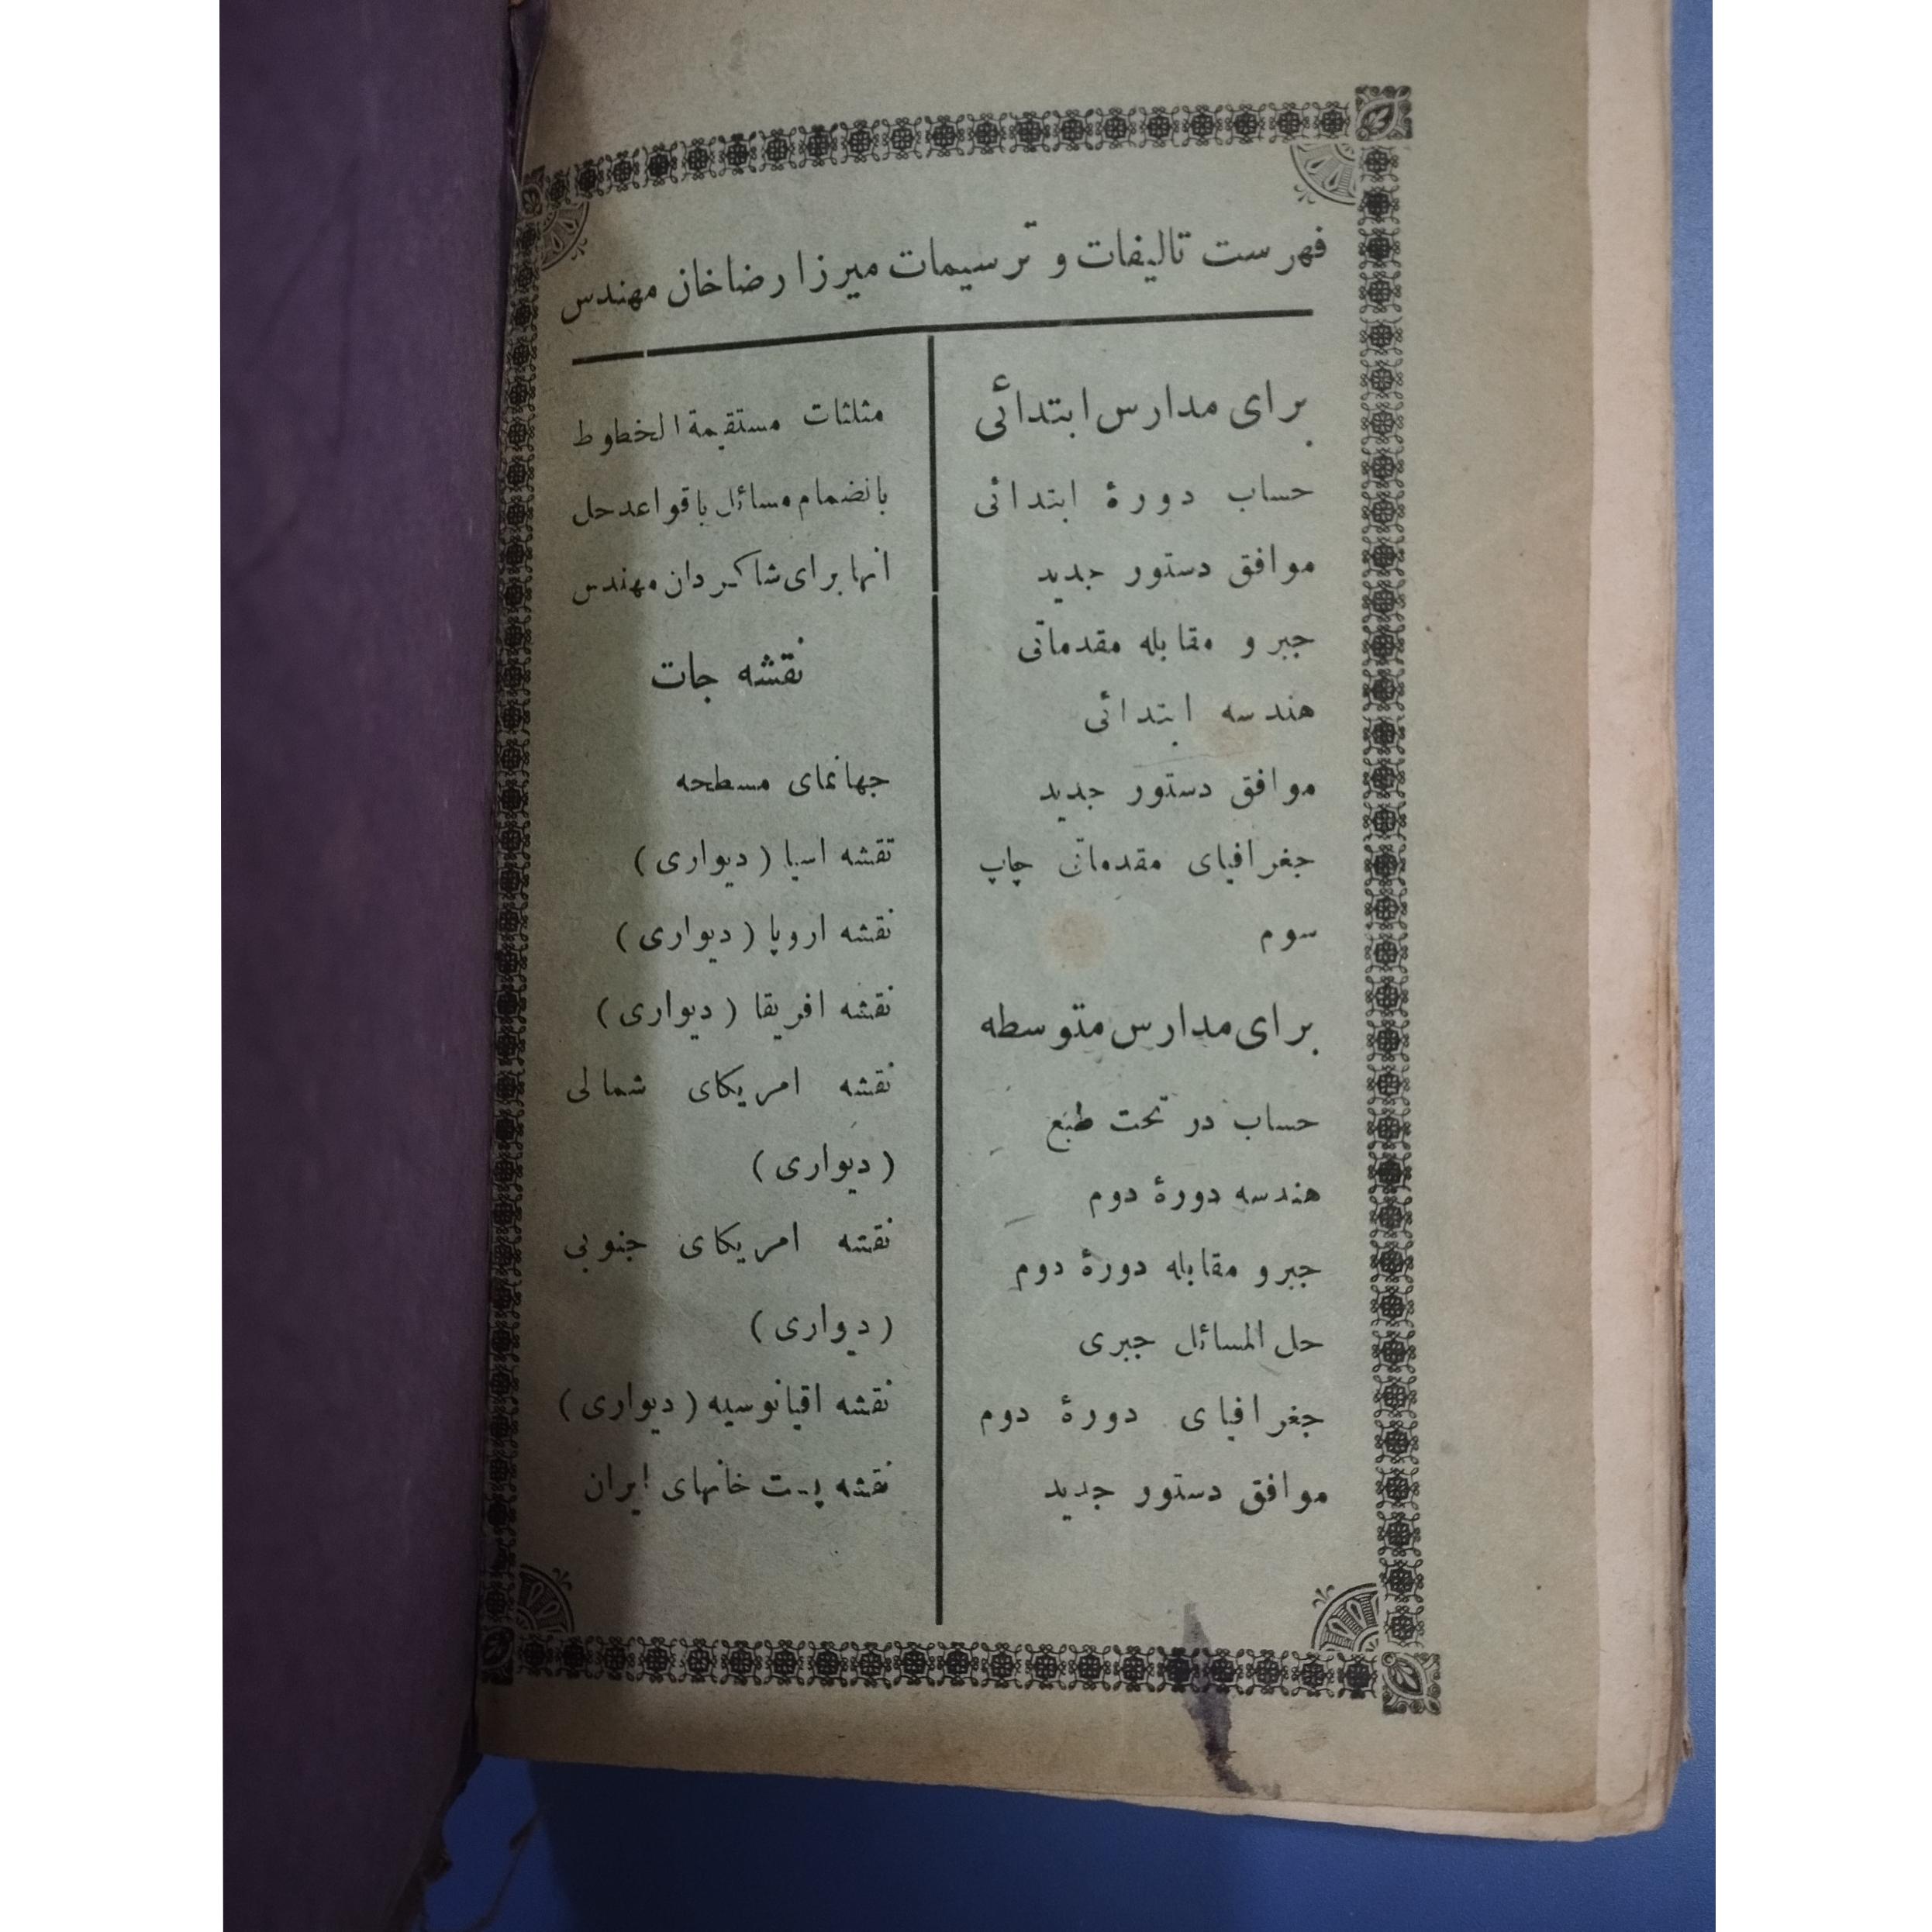 فهرست تالیفات و ترسیمات میرزا رضاخان مهندس
برای مدارس ابتدائی
حساب دورهٔ ابتدائی
موافق دستور جدید
جبر و مقابله مقدماتی
هندسه ابتدائی
موافق دستور جدید
جغرافیای مقدماتی چاپ
سوم
برای مدارس متوسطه
حساب در تحت طبع
هندسه دورهٔ دوم
جبر و مقابله دورهٔ دوم
حل المسائل جبری
جغرافیای دورهٔ دوم
موافق دستور جدید
مثلثات مستقیمة الخطوط
بانضمام مسائل باقواعد حل
انها برای شاکردان مهندس
نقشه جات
جهانمای مسطحه
نقشه اسیا (دیواری)
نقشه اروپا (دیواری)
نقشه افریقا (دیواری)
نقشه امریکای شمالی
(دیواری)
نقشه امریکای جنوبی
(دیواری)
نقشه اقیانوسیه (دیواری)
نقشه پست خانهای ایران